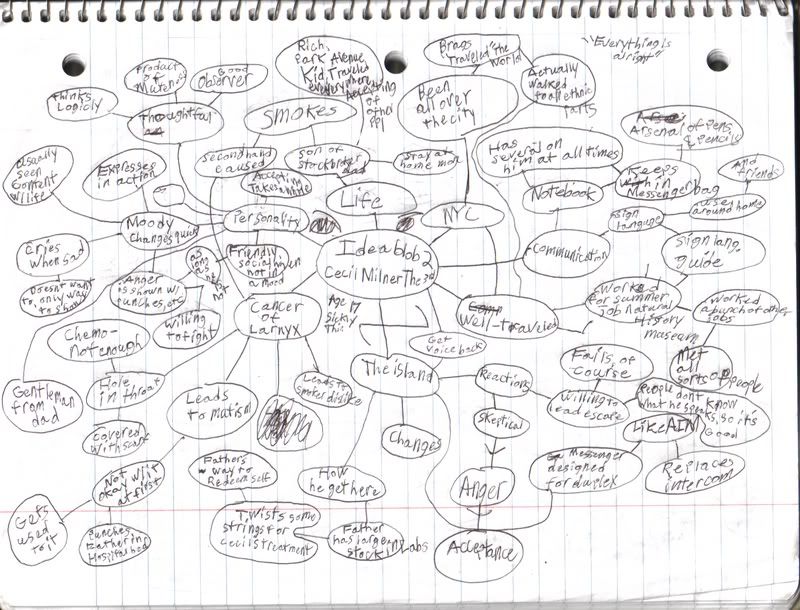 "Everything is
alright"
Rich,
Park Avenue
Kid, Traveled
everywhere,
Accepting
of other
ppl
Brags
"Traveled" the
World
Actually
walked
to all ethnic
parts
Product
of
Good
Observer
Thinks
Logicly
Thoughtful
Smokes
Been
all over
the city
Has
several on
him at all times
Arsenal of pens,
& pencils
Usually
seen
content
w/ life
Expresses
in action
secondhand
caused
son of
Stockbroker
Stay at
home mom
Notebook
Keeps
within
Messenger bag
And
friends
Accepting
Takes a
Life
NYC
sign
language
uses
around home
Moody
Changes quick
Personality
Idea blob 2
Cecil Milner The 3rd
Communication
Sign lang.
guide
Cries
when sad
Friendly,
social when
not in
a mood
as
long
as
Doesn't want
to, only way
to show
Anger
is shown w/
punches, etc.
willing
to fight
Cancer
of
Larnyx
Age 17
Sickly
Thin
Well-traveled
Worked
for summer
job natural
History
museum
Worked
a bunch of other
jobs
Chemo-
Not enough
Get
voice back
The island
Reactions
Fails, of
course
Met
all
sorts of people
Gentleman
from
dad
Hole
in throat
Leads
to mutism
Leads to
smoker dislike
Changes
Skeptical
Willing to
lead escape
People
don't know
what he speaks, so it's
Good
Like AIM
covered
with scarf
Not
okay w/ it
at first
Father's
way to
Redeem self
How
he get here
Anger
Messenger
designed
for duplex
Replaces
intercom
Gets
used
to it
Punches
Father in
Hospital bed
Twists some
strings for
Cecil's treatment
Father
has large
stock in Labs
Acceptance